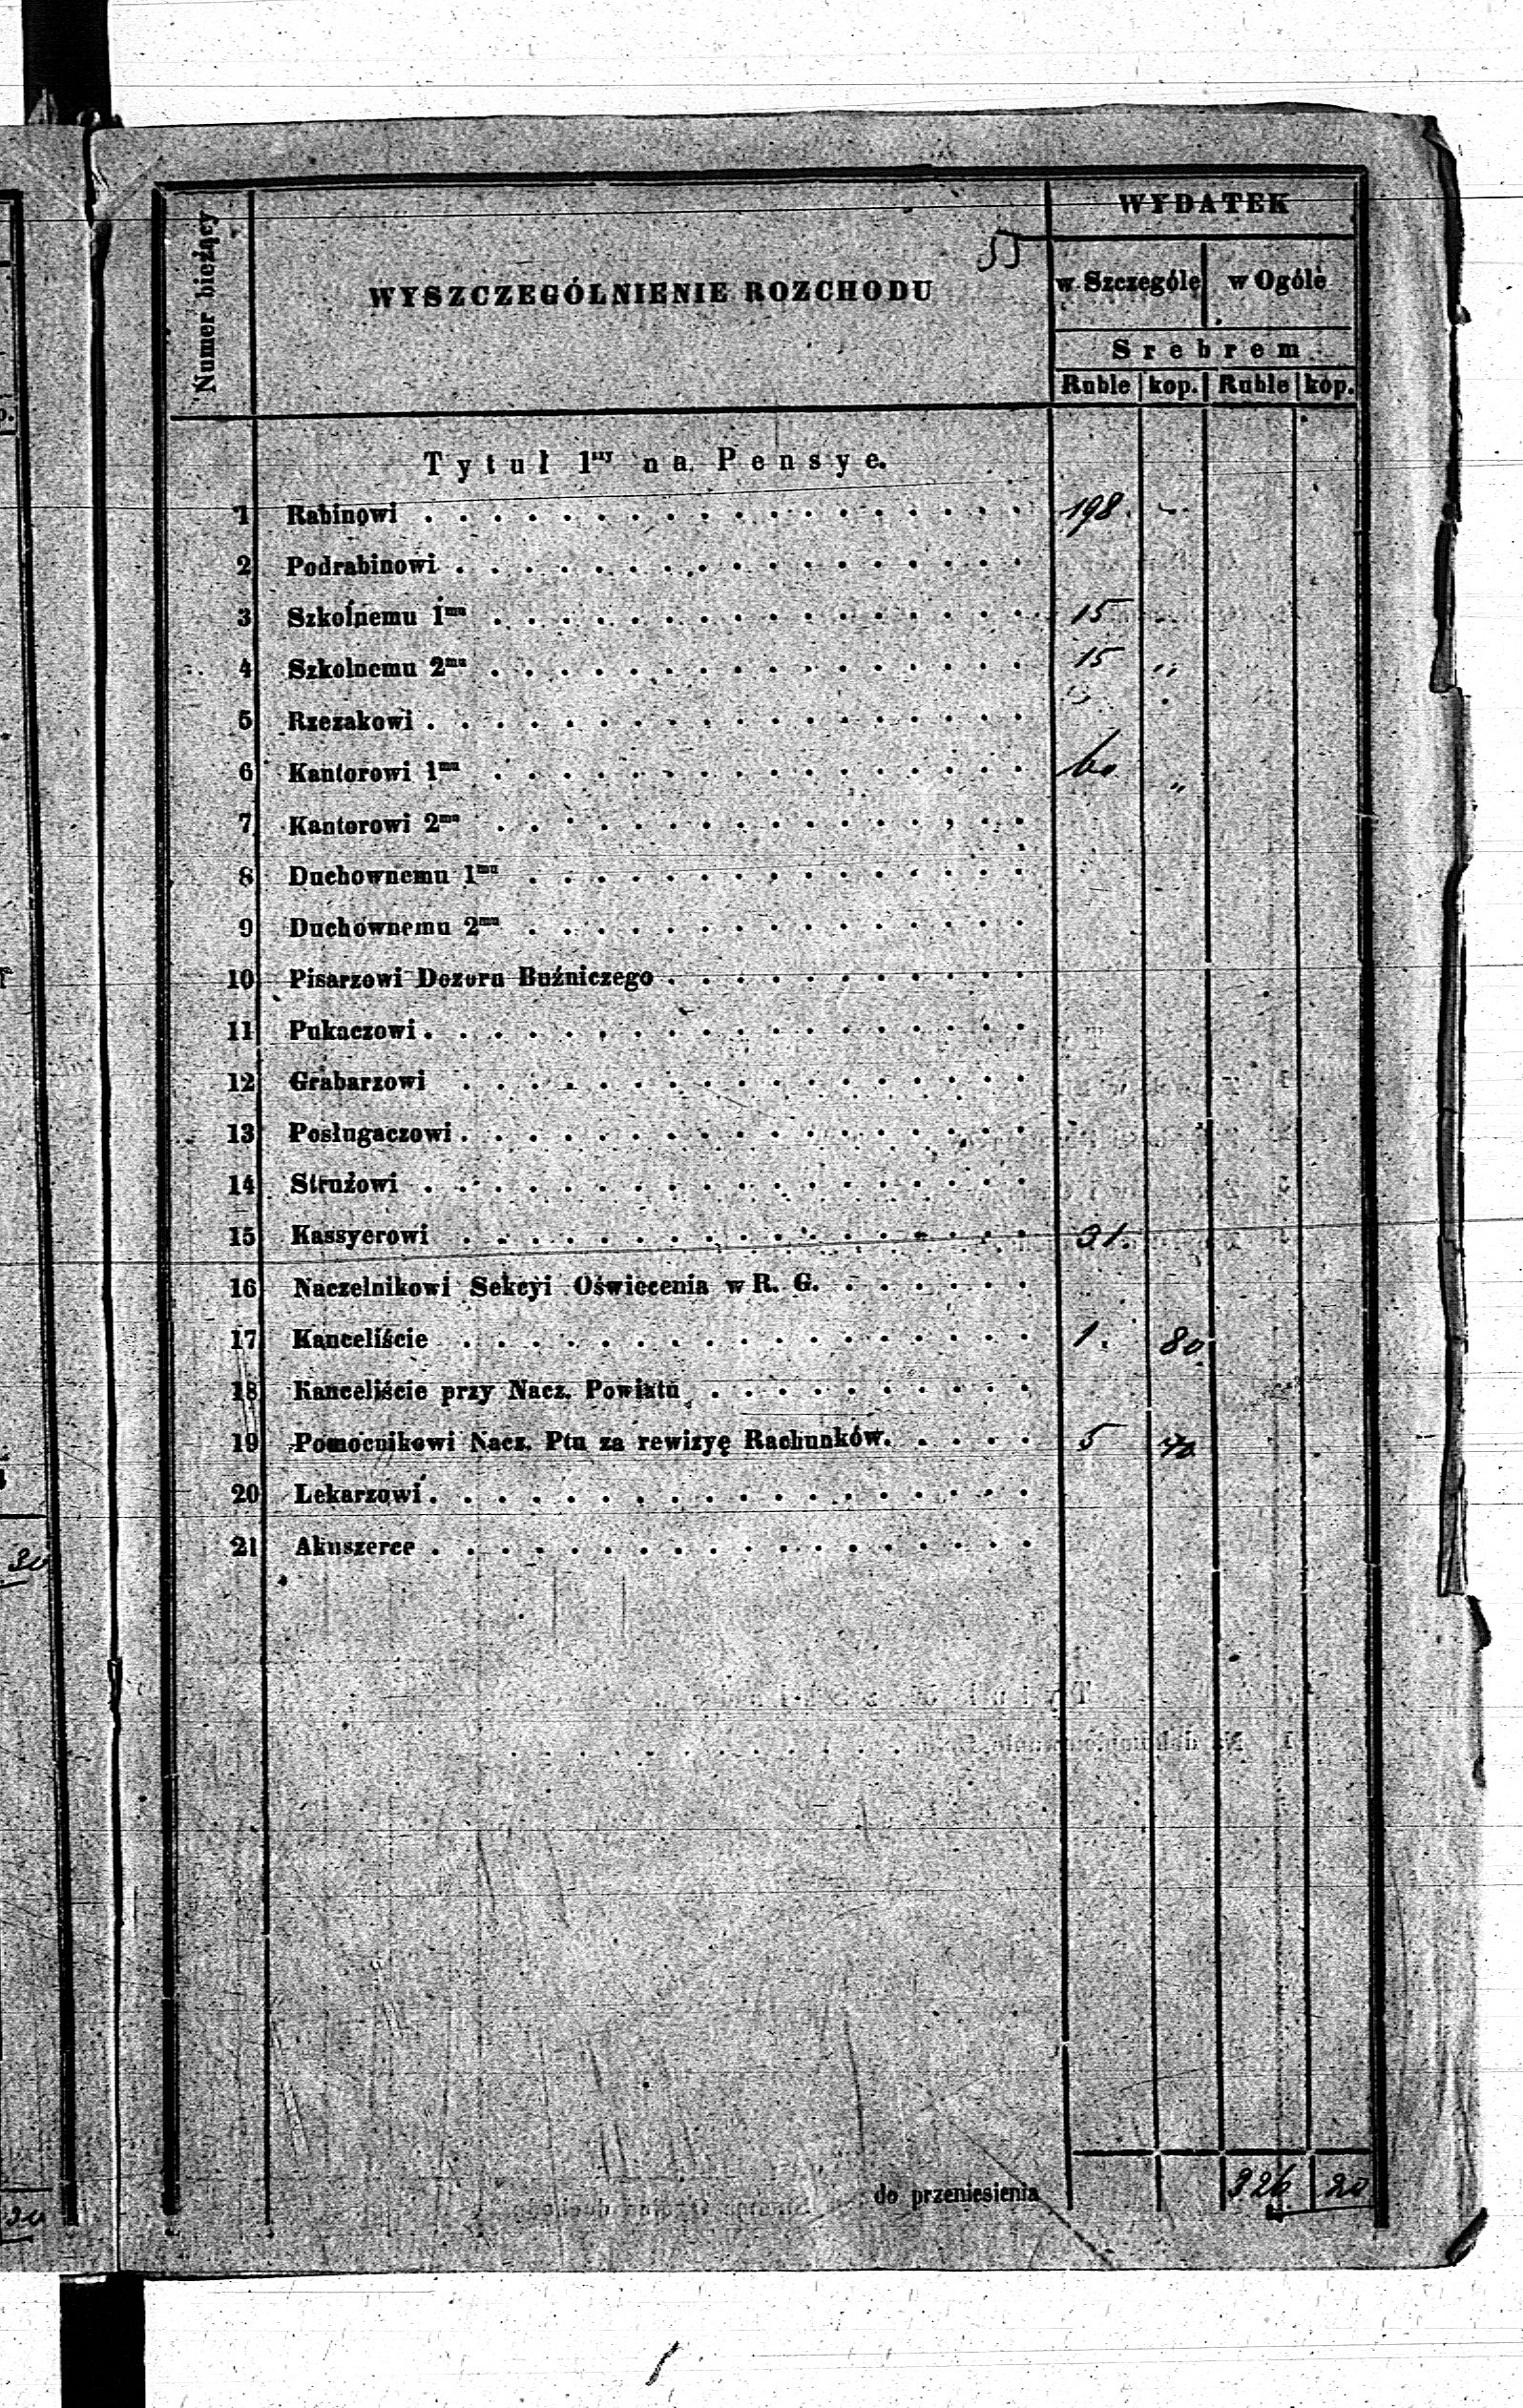 Numer bieżący
WYSZCZEGÓLNIENIE ROZCHODU
55
WYDATEK
w Szczególe w Ogóle
Srebrem
Ruble kop. Ruble kop.
Tytuł 1ny na Pensye.
1 Rabinowi 198. „
2 Podrabinowi
3 Szkolnemu 1mu 15 „
4 Szkolnemu 2mu 15 „
5 Rzezakowi
6 Kantorowi 1mu 60 „
7 Kantorowi 2mu
8 Duchownemu 1mu
9 Duchownemu 2mu
10 Pisarzowi Dozoru Buźniczego
11 Pukaczowi
12 Grabarzowi
13 Posługaczowi
14 Strużowi
15 Kassyerowi 31.
16 Naczelnikowi Sekcyi Oświecenia w R. G.
17 Kanceliście 1. 80
18 Kanceliście przy Nacz. Powiatu
19 Pomocnikowi Nacz. Ptu za rewizyę Rachunków. 5 40
20 Lekarzowi
21 Akuszerce
do przeniesienia 326 20